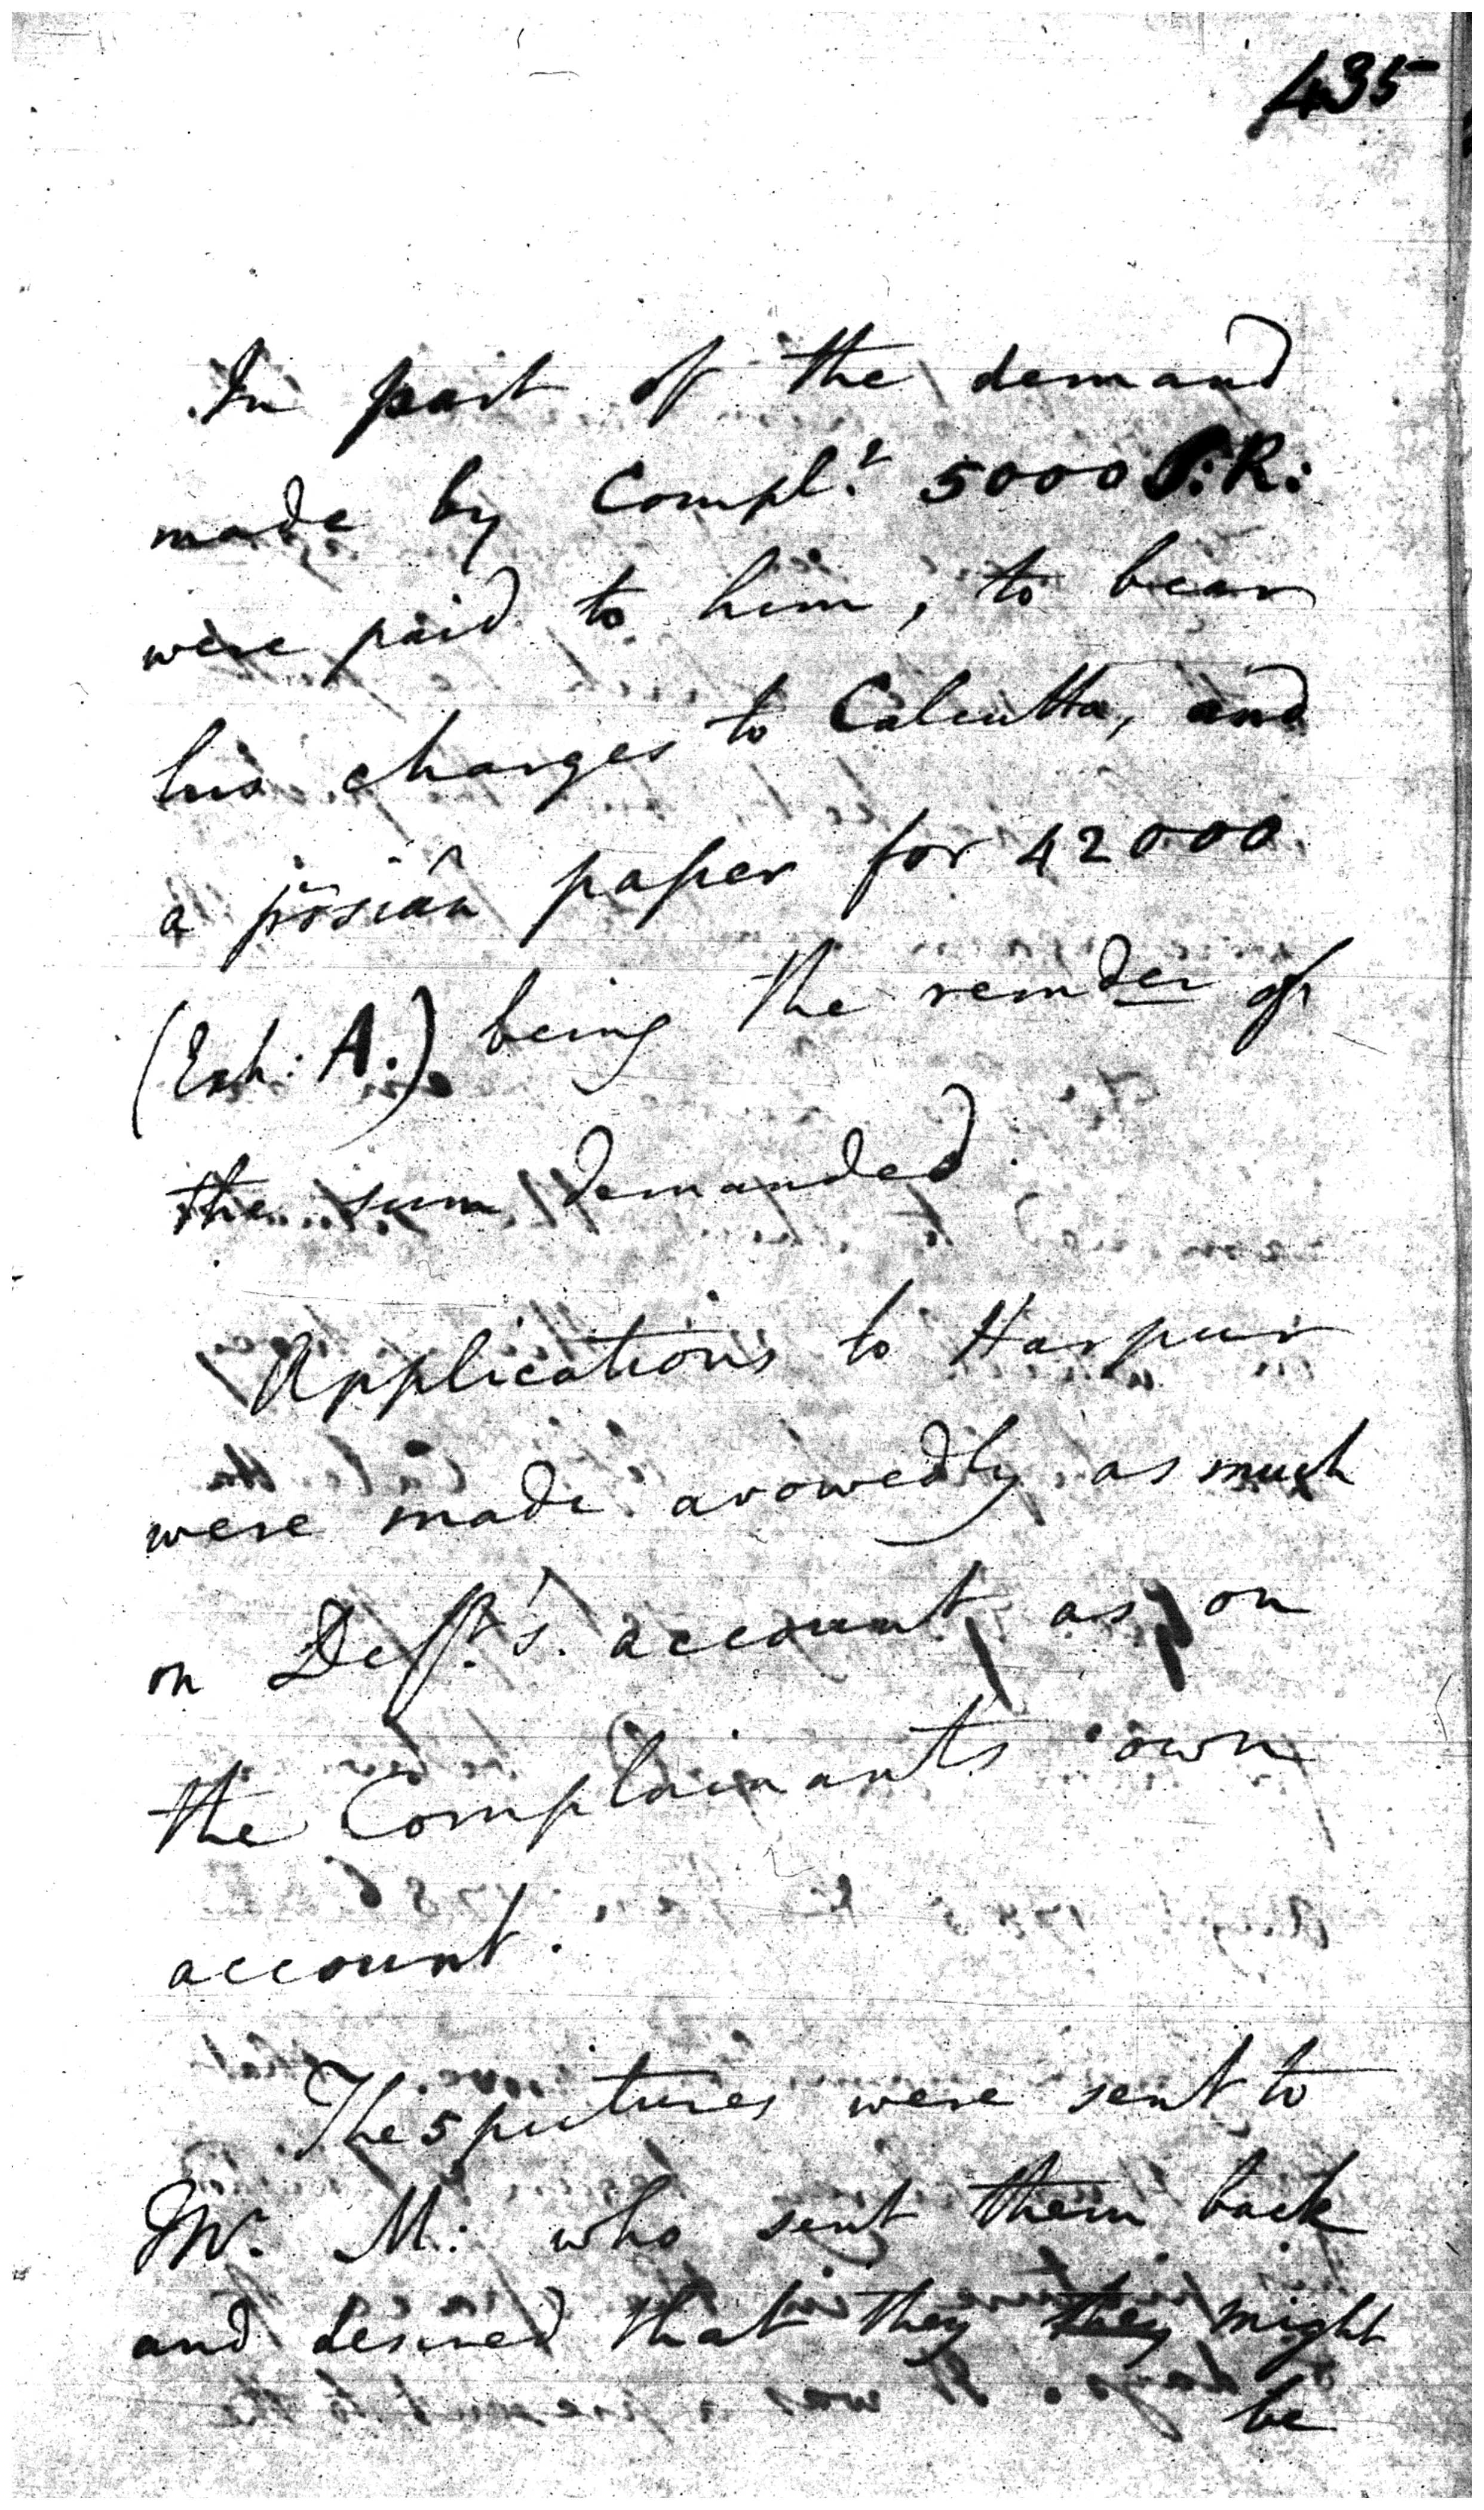 435
In part of the demand
made by Compl.t 5000 S:R:
were paid to him, to bear
his charges to Calcutta, and
a persian paper for 42000
(Exh: A.) being the remder of
the sum demanded.
Applications to Harpur
were made avowedly as much
on Deft.'s account as on
the Complainants own
account.
The 5 pictures were sent to
Mr. M: who sent them back
and desired that they they might
be